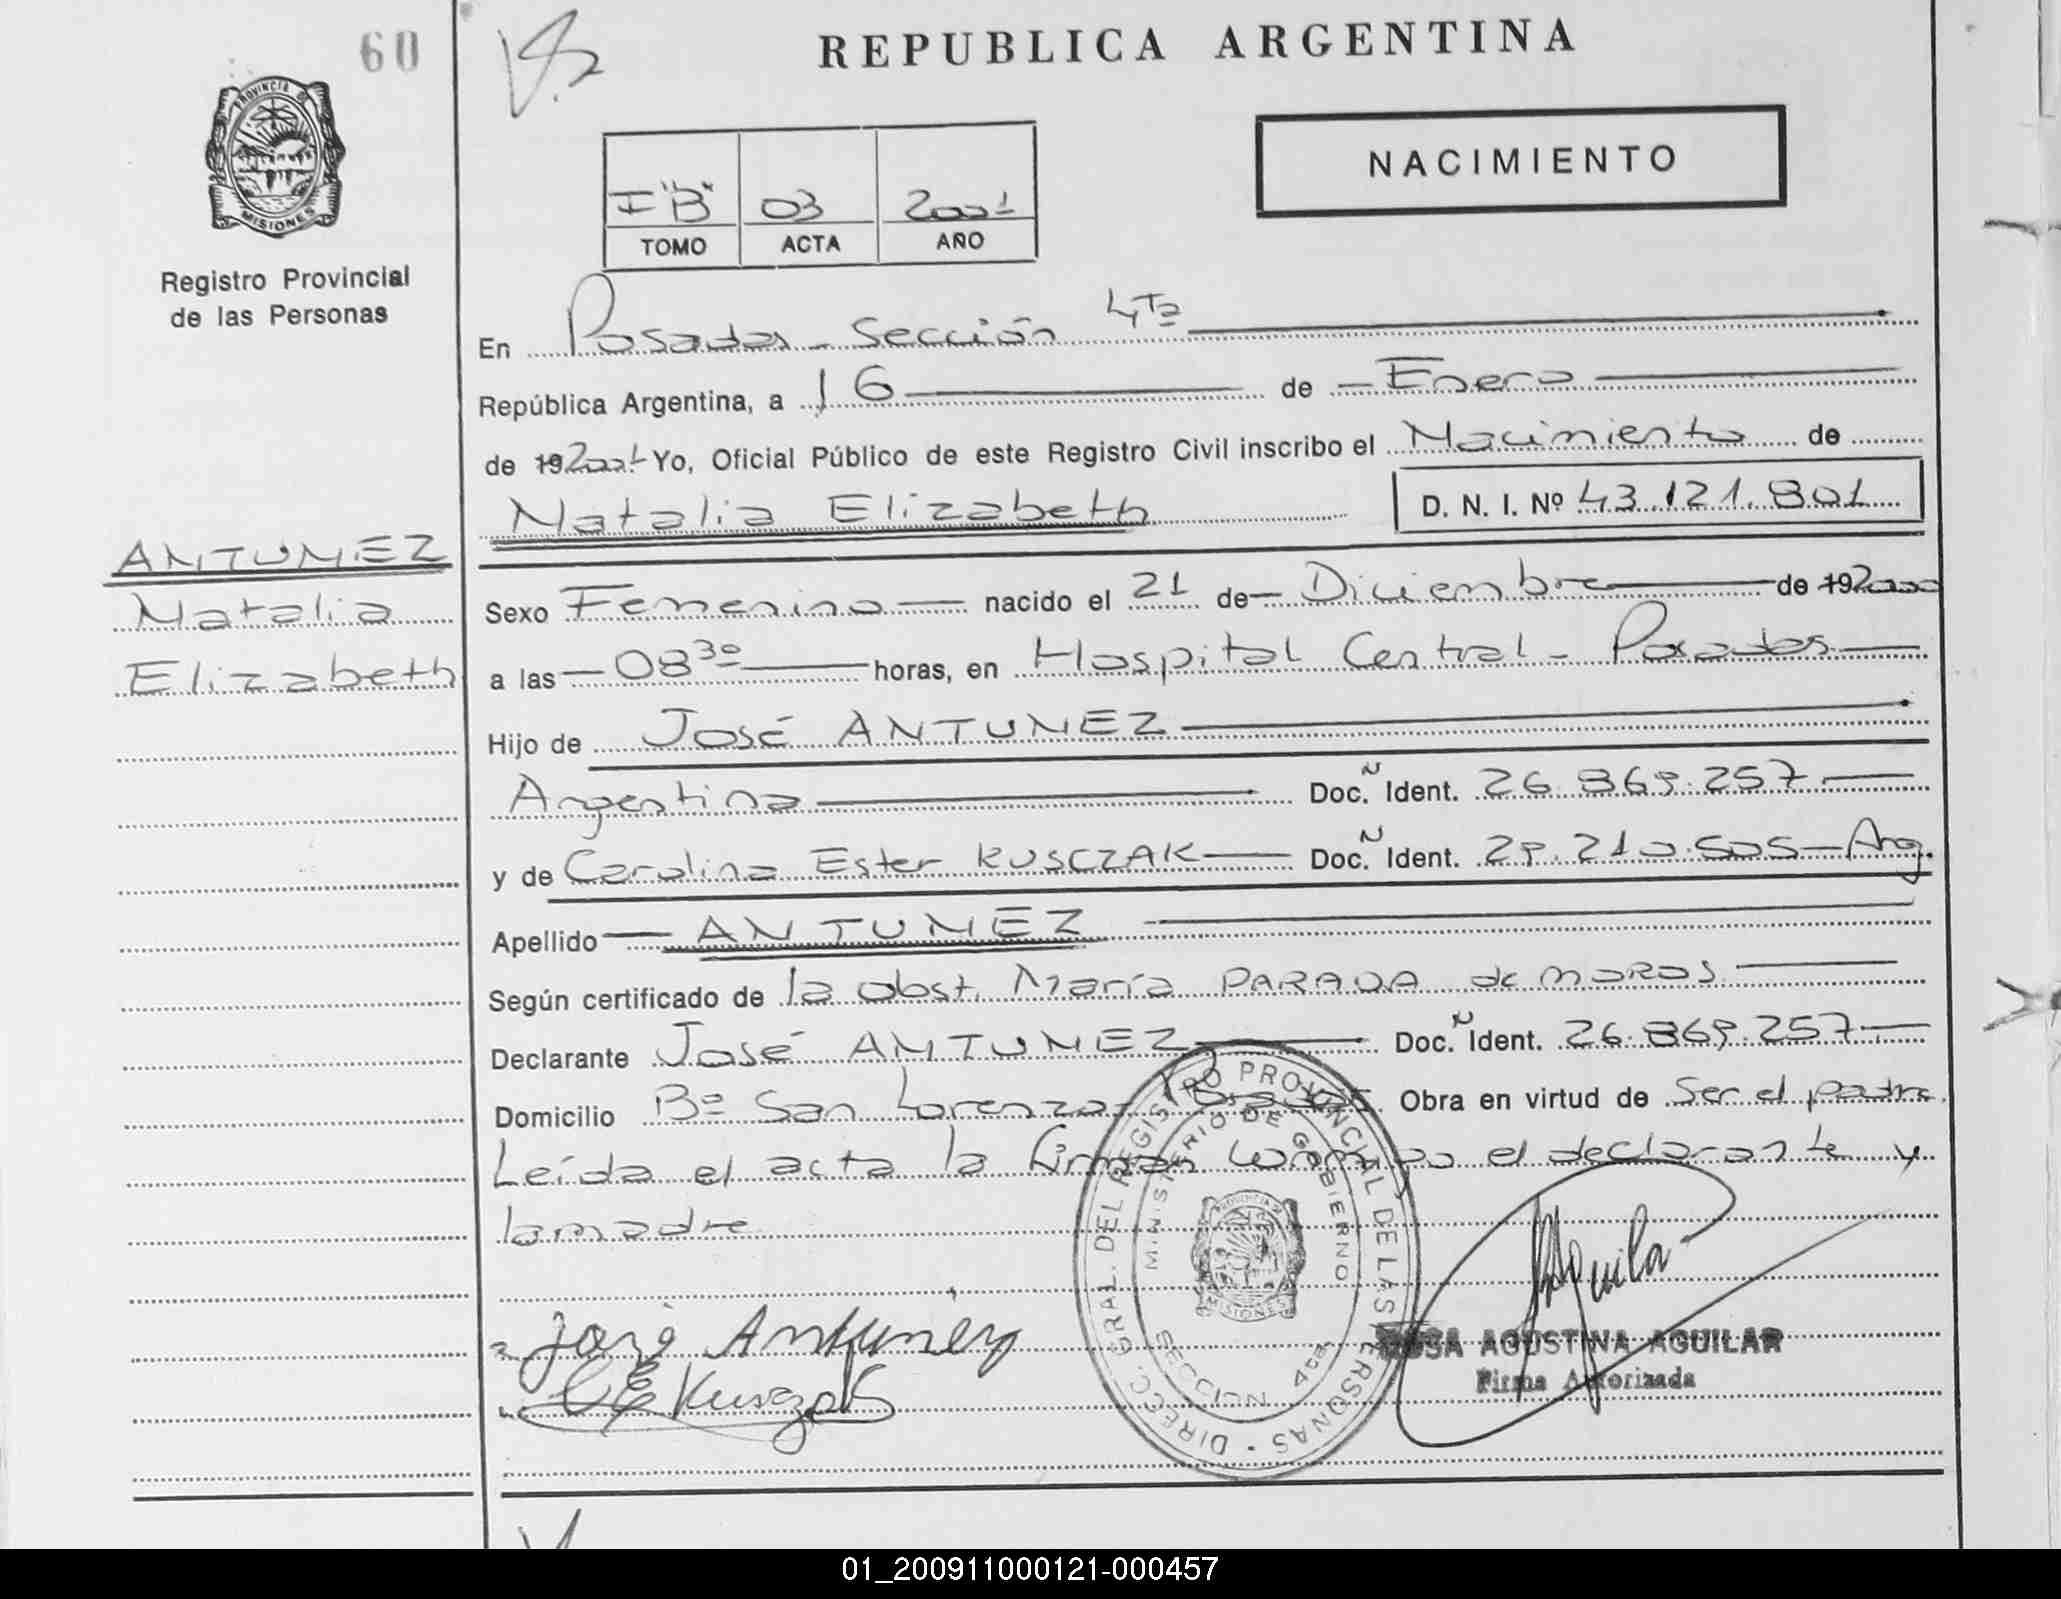 60
REPUBLICA ARGENTINA
PROVINCIA DE
MISIONES
Registro Provincial
de las Personas
NACIMIENTO
I "B" 03 2001
TOMO ACTA AÑO
En Posadas - Sección 4Ta
República Argentina, a 16 de Enero
de 19 2001 Yo, Oficial Público de este Registro Civil inscribo el Nacimiento de
Natalia Elizabeth D. N. I. Nº 43.121.801
ANTUNEZ
Natalia
Elizabeth
Sexo Femenino nacido el 21 de Diciembre de 19 2000
a las 08 30 horas, en Hospital Central - Posadas
Hijo de José ANTUNEZ
Argentina Doc. N Ident. 26.869.257
y de Carolina Ester KUSCZAK Doc. N Ident. 29.210.505 - Arg.
Apellido ANTUNEZ
Según certificado de la obst. María PARADA de MOROS
Declarante José ANTUNEZ Doc. N Ident. 26.869.257
Domicilio Bº San Lorenzo - Posadas Obra en virtud de Ser el padre.
Leída el acta la firman conmigo el declarante y
la madre
José Antunez
C E Kusczak
DIRECC. GRAL. DEL REGISTRO PROVINCIAL DE LAS PERSONAS
MINISTERIO DE GOBIERNO
MISIONES
SECCION 4ta
Aguilar
ROSA AGUSTINA AGUILAR
Firma Autorizada
01_200911000121-000457